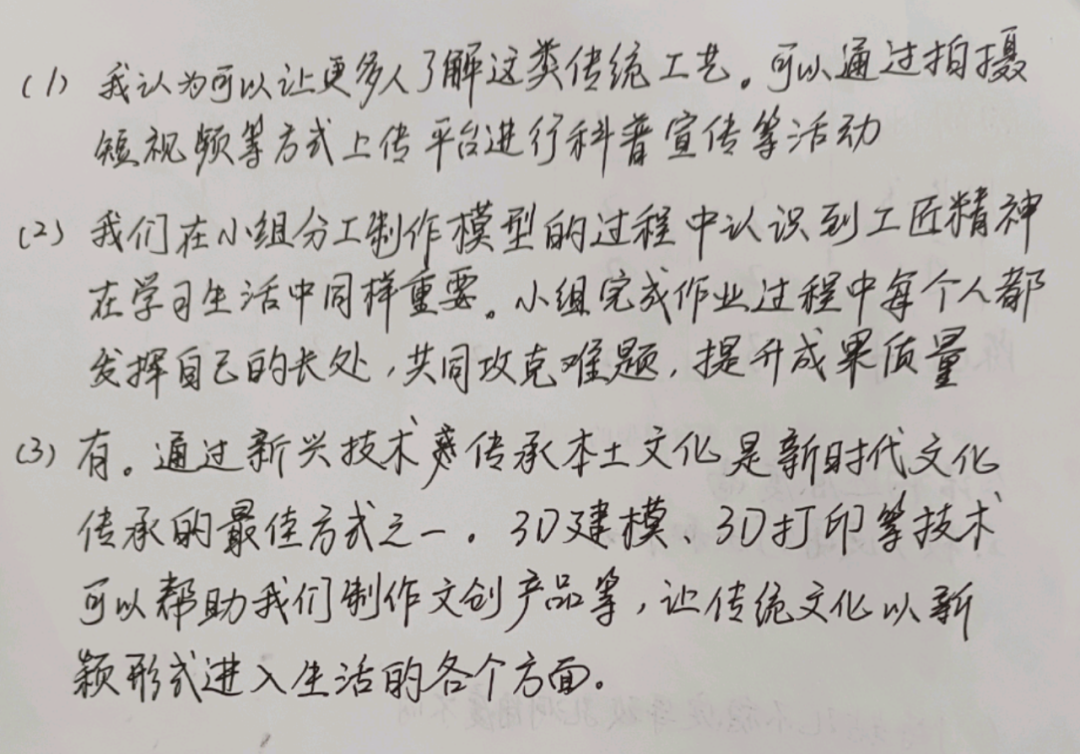 (1) 我认为可以让更多人了解这类传统工艺。可以通过拍摄
短视频等方式上传平台进行科普宣传等活动
(2) 我们在小组分工制作模型的过程中认识到工匠精神
在学习生活中同样重要。小组完成作业过程中每个人都
发挥自己的长处,共同攻克难题,提升成果质量
(3) 有。通过新兴技术传承本土文化是新时代文化
传承的最佳方式之一。3D建模、3D打印等技术
可以帮助我们制作文创产品等,让传统文化以新
颖形式进入生活的各个方面。